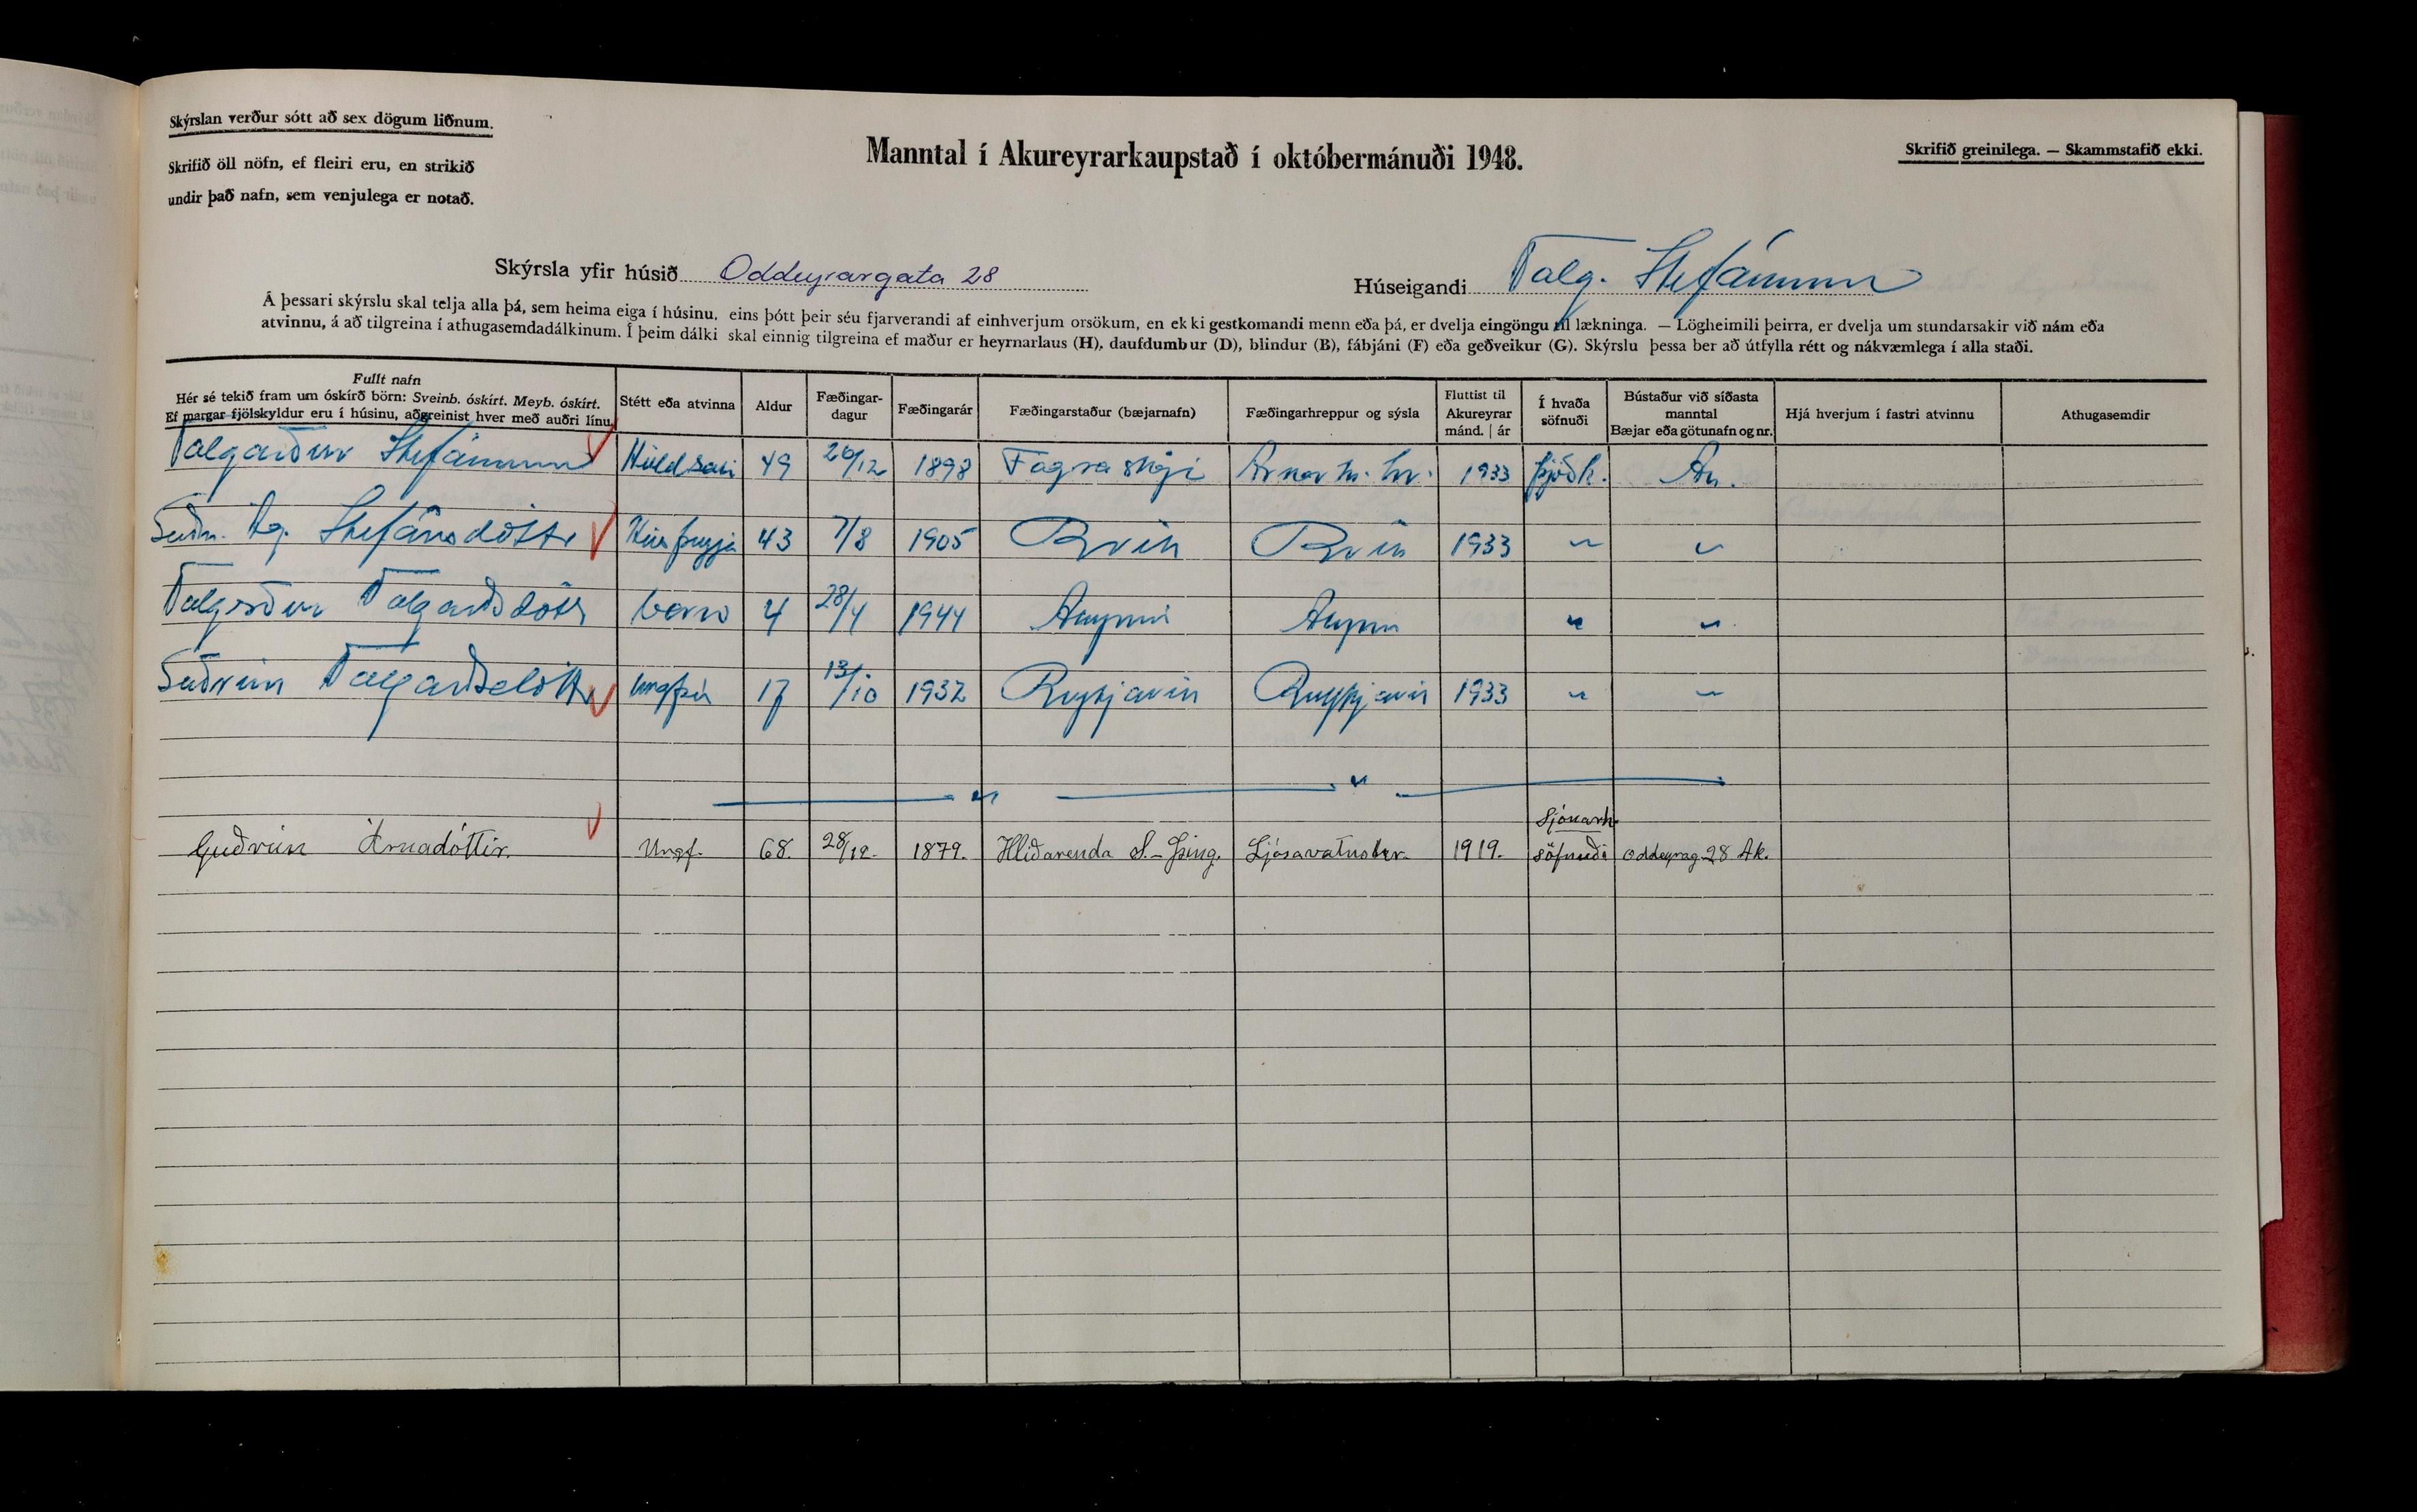 Skýrslan verður sótt að sex dögum liðnum.
Skrifið öll nöfn, ef fleiri eru, en strikið
undir það nafn, sem venjulega er notað.
Manntal í Akureyrarkaupstað í októbermánuði 1948.
Skrifið greinilega. — Skammstafið ekki.
Skýrsla yfir húsið Oddeyrargata 28
Húseigandi Valg. Stefánsson
Á þessari skýrslu skal telja alla þá, sem heima eiga í húsinu, eins þótt þeir séu fjarverandi af einhverjum orsökum, en ekki gestkomandi menn eða þá, er dvelja eingöngu til lækninga. — Lögheimili þeirra, er dvelja um stundarsakir við nám eða
atvinnu, á að tilgreina í athugasemdadálkinum. Í þeim dálki skal einnig tilgreina ef maður er heyrnarlaus (H), daufdumbur (D), blindur (B), fábjáni (F) eða geðveikur (G). Skýrslu þessa ber að útfylla rétt og nákvæmlega í alla staði.
Fullt nafn
Hér sé tekið fram um óskírð börn: Sveinb. óskírt. Meyb. óskírt.
Ef margar fjölskyldur eru í húsinu, aðgreinist hver með auðri línu.
Stétt eða atvinna
Aldur
Fæðingar-
dagur
Fæðingarár
Fæðingarstaður (bæjarnafn)
Fæðingarhreppur og sýsla
Fluttist til
Akureyrar
mánd. | ár
Í hvaða
söfnuði
Bústaður við síðasta
manntal
Bæjar eða götunafn og nr.
Hjá hverjum í fastri atvinnu
Athugasemdir
Valgarður Stefánsson Heildsali 49 26/12 1898 Fagraskógi Arnarn. hr. 1933 Þjóðk. Ak.
Guðm. Stefánsdóttir Húsfreyja 43 7/8 1905 Rvík Rvík 1933 " "
Valgerður Valgarðsdóttir barn 4 28/4 1944 Akureyri Akureyri " "
Guðrún Valgarðsdóttir ungfrú 17 13/10 1932 Reykjavík Reykjavík 1933 " "
Guðrún Árnadóttir. Ungf. 68. 28/12. 1879. Hlíðarenda S.-Þing. Ljósavatnshr. 1919. Sjónarh. söfnuði Oddeyrag. 28 Ak.